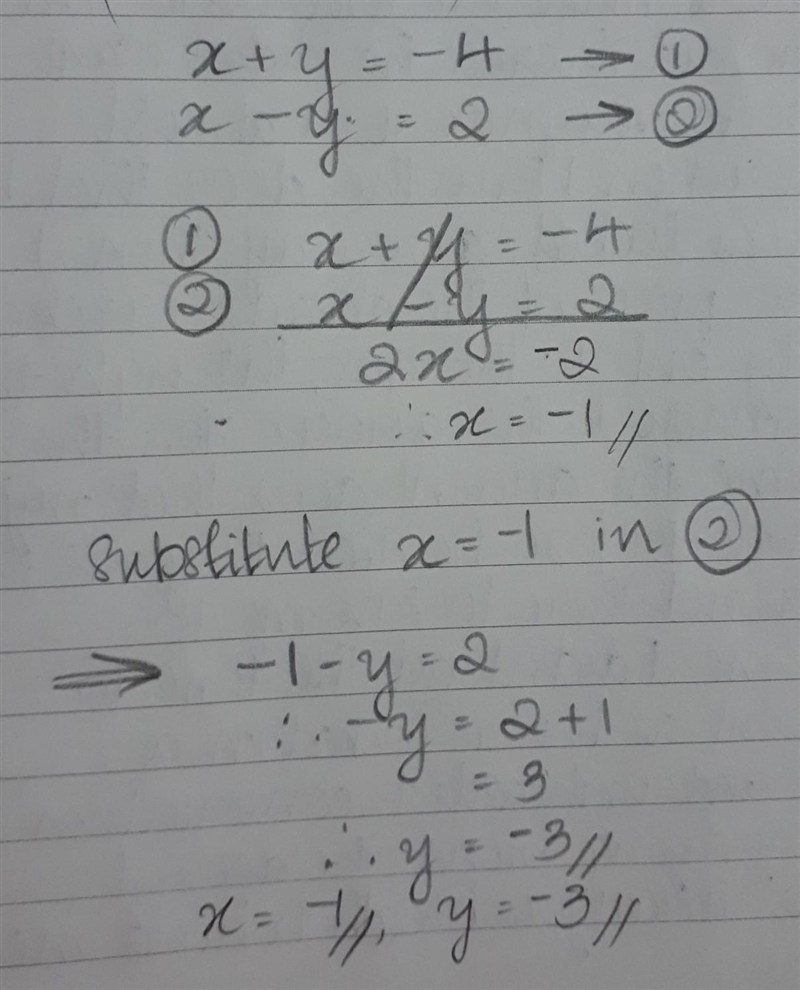 x + y = -4 → ①
x - y = 2 → ②
① x + y = -4
② x - y = 2
2x = -2
∴ x = -1 //
substitute x = -1 in ②
⇒ -1 - y = 2
∴ -y = 2 + 1
= 3
∴ y = -3 //
x = -1 //, y = -3 //